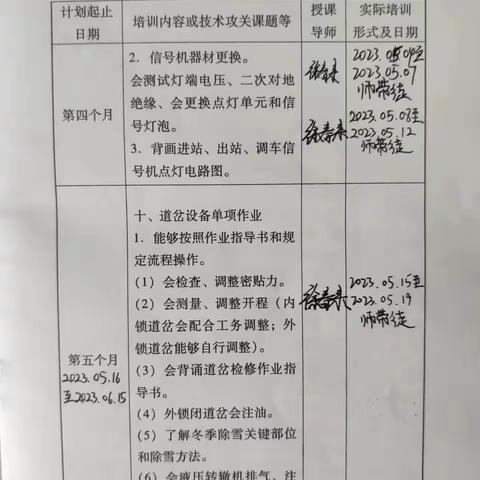 计划起止
日期
培训内容或技术攻关课题等
授课
导师
实际培训
形式及日期
第四个月
2. 信号机器材更换。
会测试灯端电压、二次对地
绝缘、会更换点灯单元和信
号灯泡。
3. 背画进站、出站、调车信
号机点灯电路图。
徐春来
徐春来
2023.05.04至
2023.05.07
师带徒
2023.05.08至
2023.05.12
师带徒
第五个月
2023.05.16
至2023.06.15
十、道岔设备单项作业
1. 能够按照作业指导书和规
定流程操作。
(1) 会检查、调整密贴力。
(2) 会测量、调整开程（内
锁道岔会配合工务调整；外
锁道岔能够自行调整）。
(3) 会背诵道岔检修作业指
导书。
(4) 外锁闭道岔会注油。
(5) 了解冬季除雪关键部位
和除雪方法。
(6) 会液压转辙机排气、注
徐春来
2023.05.15至
2023.05.19
师带徒